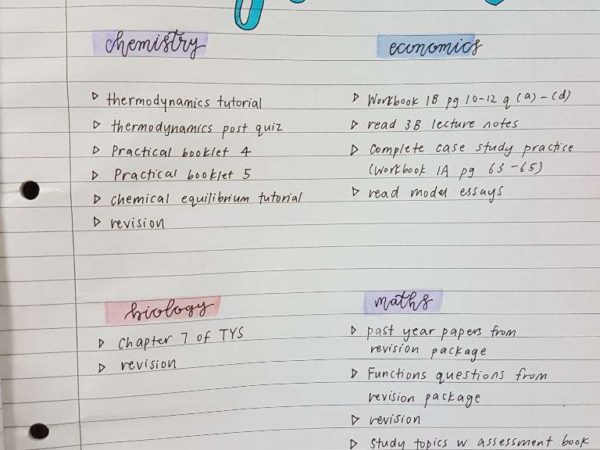 chemistry
▷ thermodynamics tutorial
▷ thermodynamics post quiz
▷ Practical booklet 4
▷ Practical booklet 5
▷ chemical equilibrium tutorial
▷ revision
economics
▷ Workbook 1B pg 10-12 q (a)-(d)
▷ read 3B lecture notes
▷ Complete case study practice
(Workbook 1A pg 63-65)
▷ read model essays
biology
▷ Chapter 7 of TYS
▷ revision
maths
▷ past year papers from
revision package
▷ Functions questions from
revision package
▷ revision
▷ Study topics w assessment book